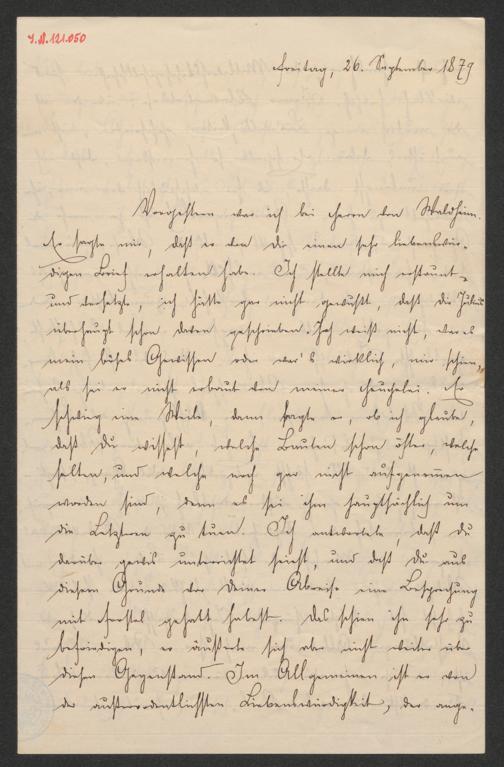 I.N. 121.050
Freitag, 26. September 1879
Vorgestern war ich bei Herrn von Waldheim.
Er sagte mir, daß er von dir einen sehr liebenswür-
digen Brief erhalten habe. Ich stellte mich erstaunt
und versetzte, ich hätte gar nicht gewußt, daß du
überhaupt schon davon geschrieben. Ich weiß nicht, war es
mein böses Gewissen oder war's wirklich, mir schien,
als sei er nicht erbaut von meiner Heuchelei. Er
schwieg eine Weile, dann fragte er, ob ich glaube,
daß Du wissest, welche Bauten schon öfter, welche
selten, und welche noch gar nicht aufgenommen
worden sind, denn es sei ihm hauptsächlich um
die Letztern zu tuen. Ich antwortete, daß du
darüber gewiß unterrichtet seist, und daß du aus
diesem Grunde vor deiner Abreise eine Besprechung
mit Ferstel gehabt habest. Das schien ihn sehr zu
befriedigen, er äußerte sich aber nicht weiter über
diesen Gegenstand. Im Allgemeinen ist er von
der außerordentlichsten Liebenswürdigkeit, der ange-